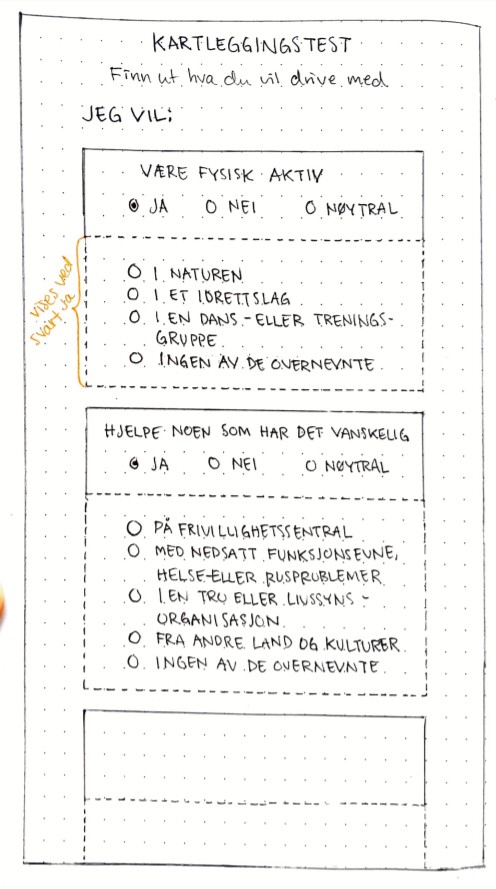 KARTLEGGINGSTEST
Finn ut hva du vil drive med
JEG VIL:
VÆRE FYSISK AKTIV
JA NEI NØYTRAL
vises ved
svart ja
I NATUREN
I ET IDRETTSLAG
I EN DANS- ELLER TRENINGS-
GRUPPE
INGEN AV DE OVERNEVNTE
HJELPE NOEN SOM HAR DET VANSKELIG
JA NEI NØYTRAL
PÅ FRIVILLIGHETSSENTRAL
MED NEDSATT FUNKSJONSEVNE,
HELSE-ELLER RUSPROBLEMER
I EN TRO ELLER LIVSSYNS-
ORGANISASJON
FRA ANDRE LAND OG KULTURER
INGEN AV DE OVERNEVNTE